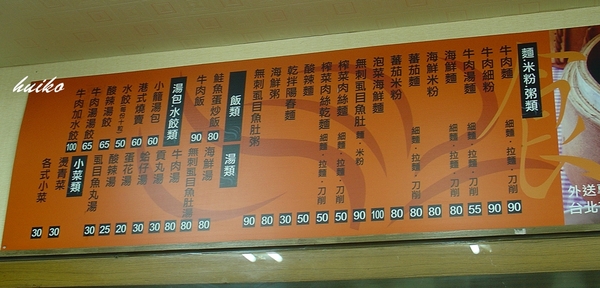 麵‧米粉‧粥類
牛肉麵 細麵‧拉麵‧刀削 90
牛肉細粉 90
牛肉湯麵 細麵‧拉麵‧刀削 55
海鮮麵 細麵‧拉麵‧刀削 80
海鮮米粉 80
蕃茄麵 細麵‧拉麵‧刀削 80
蕃茄米粉 80
泡菜海鮮麵 100
無刺虱目魚肚麵 麵‧米粉 90
榨菜肉絲麵 細麵‧拉麵‧刀削 50
榨菜肉絲乾麵 細麵‧拉麵‧刀削 50
酸辣麵 細麵‧拉麵‧刀削 50
乾拌陽春麵 30
海鮮粥 80
無刺虱目魚肚粥 90
飯類
鮭魚蛋炒飯 80
牛肉飯 90
湯類
海鮮湯 80
無刺虱目魚肚湯 80
牛肉湯 80
貢丸湯 30
蛤仔湯 30
蛋花湯 20
酸辣湯 25
虱目魚丸湯 30
湯包‧水餃類
小籠湯包 60
港式燒賣 60
水餃 50
酸辣湯餃 65
牛肉湯湯餃 65
牛肉加水餃 100
小菜類
燙青菜 30
各式小菜 30
食
外送
台北
huiko